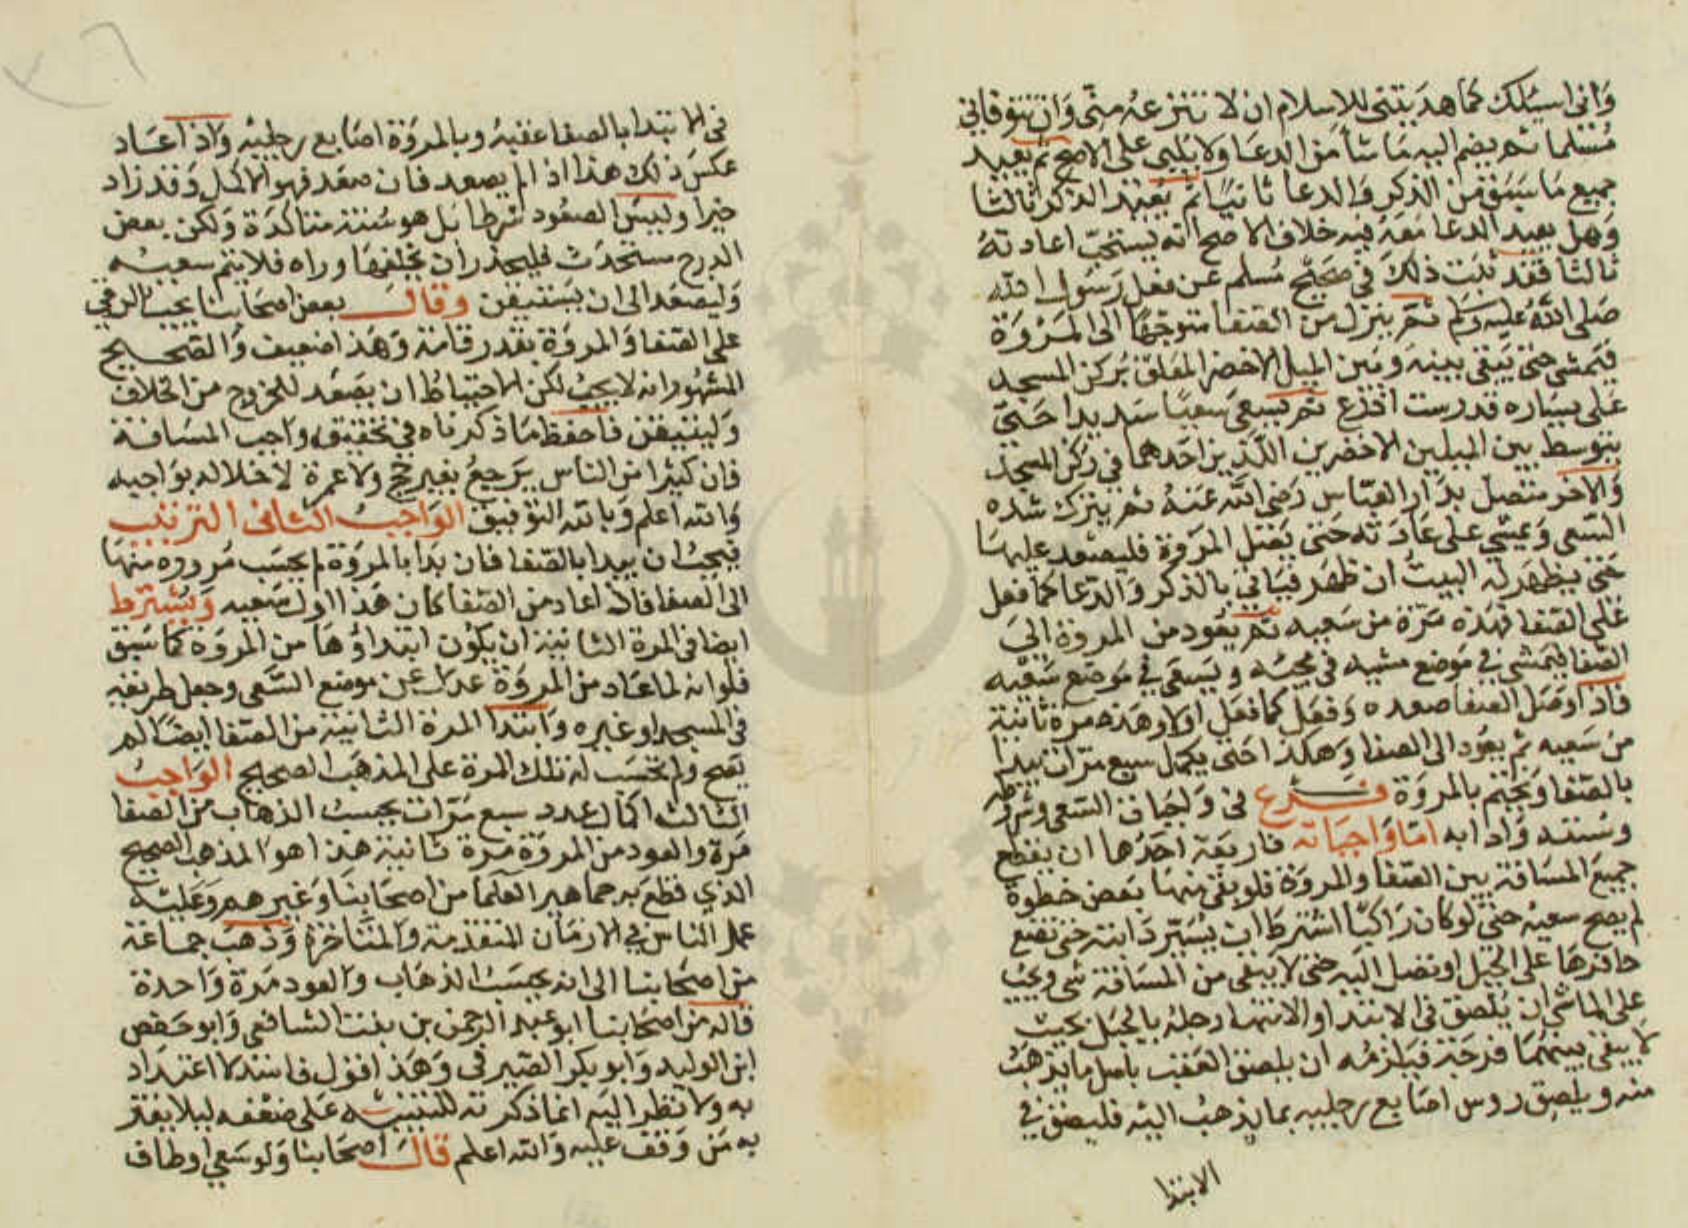 وانى اسيلك كما هديتنى للاسلام ان لا تنزعه منى وان تتوفانى
مسلما ثم يضم اليه ما شا من الدعا ولا يلبى على الاصح ثم يعيد
جميع ما سبق من الذكر والدعا ثانيا ثم يعيد الذكر ثالثا
وهل يعيد الدعا معه فيه خلاف الاصح انه يستحب اعادته
ثالثا فقد ثبت ذلك فى صحيح مسلم عن فعل رسول الله
صلى الله عليه وسلم ثم ينزل من الصفا متوجها الى المروة
فيمشى حتى يبقى بينه وبين الميل الاخضر المعلق بركن المسجد
على يساره قدر ست اذرع ثم يسعى سعيا شديدا حتى
يتوسط بين الميلين الاخضرين اللذين احدهما فى ركن المسجد
والاخر متصل بدار العباس رضى الله عنه ثم يترك شده
السعى ويمشى على عادته حتى يصل المروة فليصعد عليها
حتى يظهر له البيت ان ظهر فياتى بالذكر والدعا كما فعل
على الصفا فهذه مرة من سعيه ثم يعود من المروة الى
الصفا فيمشى فى موضع مشيه فى مجيه ويسعى فى موضع سعيه
فاذا وصل الصفا صعده وفعل كما فعل اولا وهذه مرة ثانية
من سعيه ثم يعود الى الصفا وهكذا حتى يكمل سبع مرات يبدا
بالصفا ويختم بالمروة فرع فى واجبات السعى وشروطه
وسننه وادابه اما واجباته فاربعة احدها ان يقطع
جميع المسافة بين الصفا والمروة فلو بقى منها بعض خطوة
لم يصح سعيه حتى لو كان راكبا اشترط ان يسير دابته حتى تضع
حافرها على الجبل او تصل اليه حتى لا يبقى من المسافة شى ويجب
على الماشى ان يلصق فى الابتدا والانتها رجله بالجبل بحيث
لا يبقى بينهما فرجة فيلزمه ان يلصق العقب باصل ما يذهب
منه ويلصق روس اصابع رجليه بما يذهب اليه فليصق فى
الابتدا
فى الابتدا بالصفا عقبه وبالمروة اصابع رجليه واذا عاد
عكس ذلك هذا اذا لم يصعد فان صعد فهو الاكمل وقد زاد
خيرا وليس الصعود شرطا بل هو سنة متاكدة ولكن بعض
الدرج مستحدث فليحذر ان يخلفها وراه فلا يتم سعيه
وليصعد الى ان يستيقن وقال بعض اصحابنا يجب الرقى
على الصفا والمروة بقدر قامة وهذا ضعيف والصحيح
المشهور انه لا يجب لكن الاحتياط ان يصعد للخروج من الخلاف
وليتيقن فاحفظ ما ذكرناه فى تحقيق واجب المسافة
فان كثيرا من الناس يرجع بغير حج ولا عمرة لاخلاله بواجبه
والله اعلم وبالله التوفيق الواجب الثانى الترتيب
فيجب ان يبدا بالصفا فان بدا بالمروة لم يحسب مروره منها
الى الصفا فاذا عاد من الصفا كان هذا اول سعيه ويشترط
ايضا فى المرة الثانية ان يكون ابتداوها من المروة كما سبق
فلو انه لما عاد من المروة عدل عن موضع السعى وجعل طريقه
فى المسجد او غيره وابتدا المرة الثانية من الصفا ايضا لم
يصح ولم تحسب له تلك المرة على المذهب الصحيح الواجب
الثالث اكمال عدد سبع مرات يحسب الذهاب من الصفا
مرة والعود من المروة مرة ثانية هذا هو المذهب الصحيح
الذى قطع به جماهير العلما من اصحابنا وغيرهم وعليه
عمل الناس فى الازمان المتقدمة والمتاخرة وذهب جماعة
من اصحابنا الى انه يحسب الذهاب والعود مرة واحدة
قاله من اصحابنا ابو عبد الرحمن بن بنت الشافعى وابو حفص
ابن الوليد وابو بكر الصيرفى وهذا قول فاسد لا اعتداد
به ولا نظر اليه انما ذكرته للتنبيه على ضعفه ليلا يغتر
به من وقف عليه والله اعلم قال اصحابنا ولو سعى او طاف